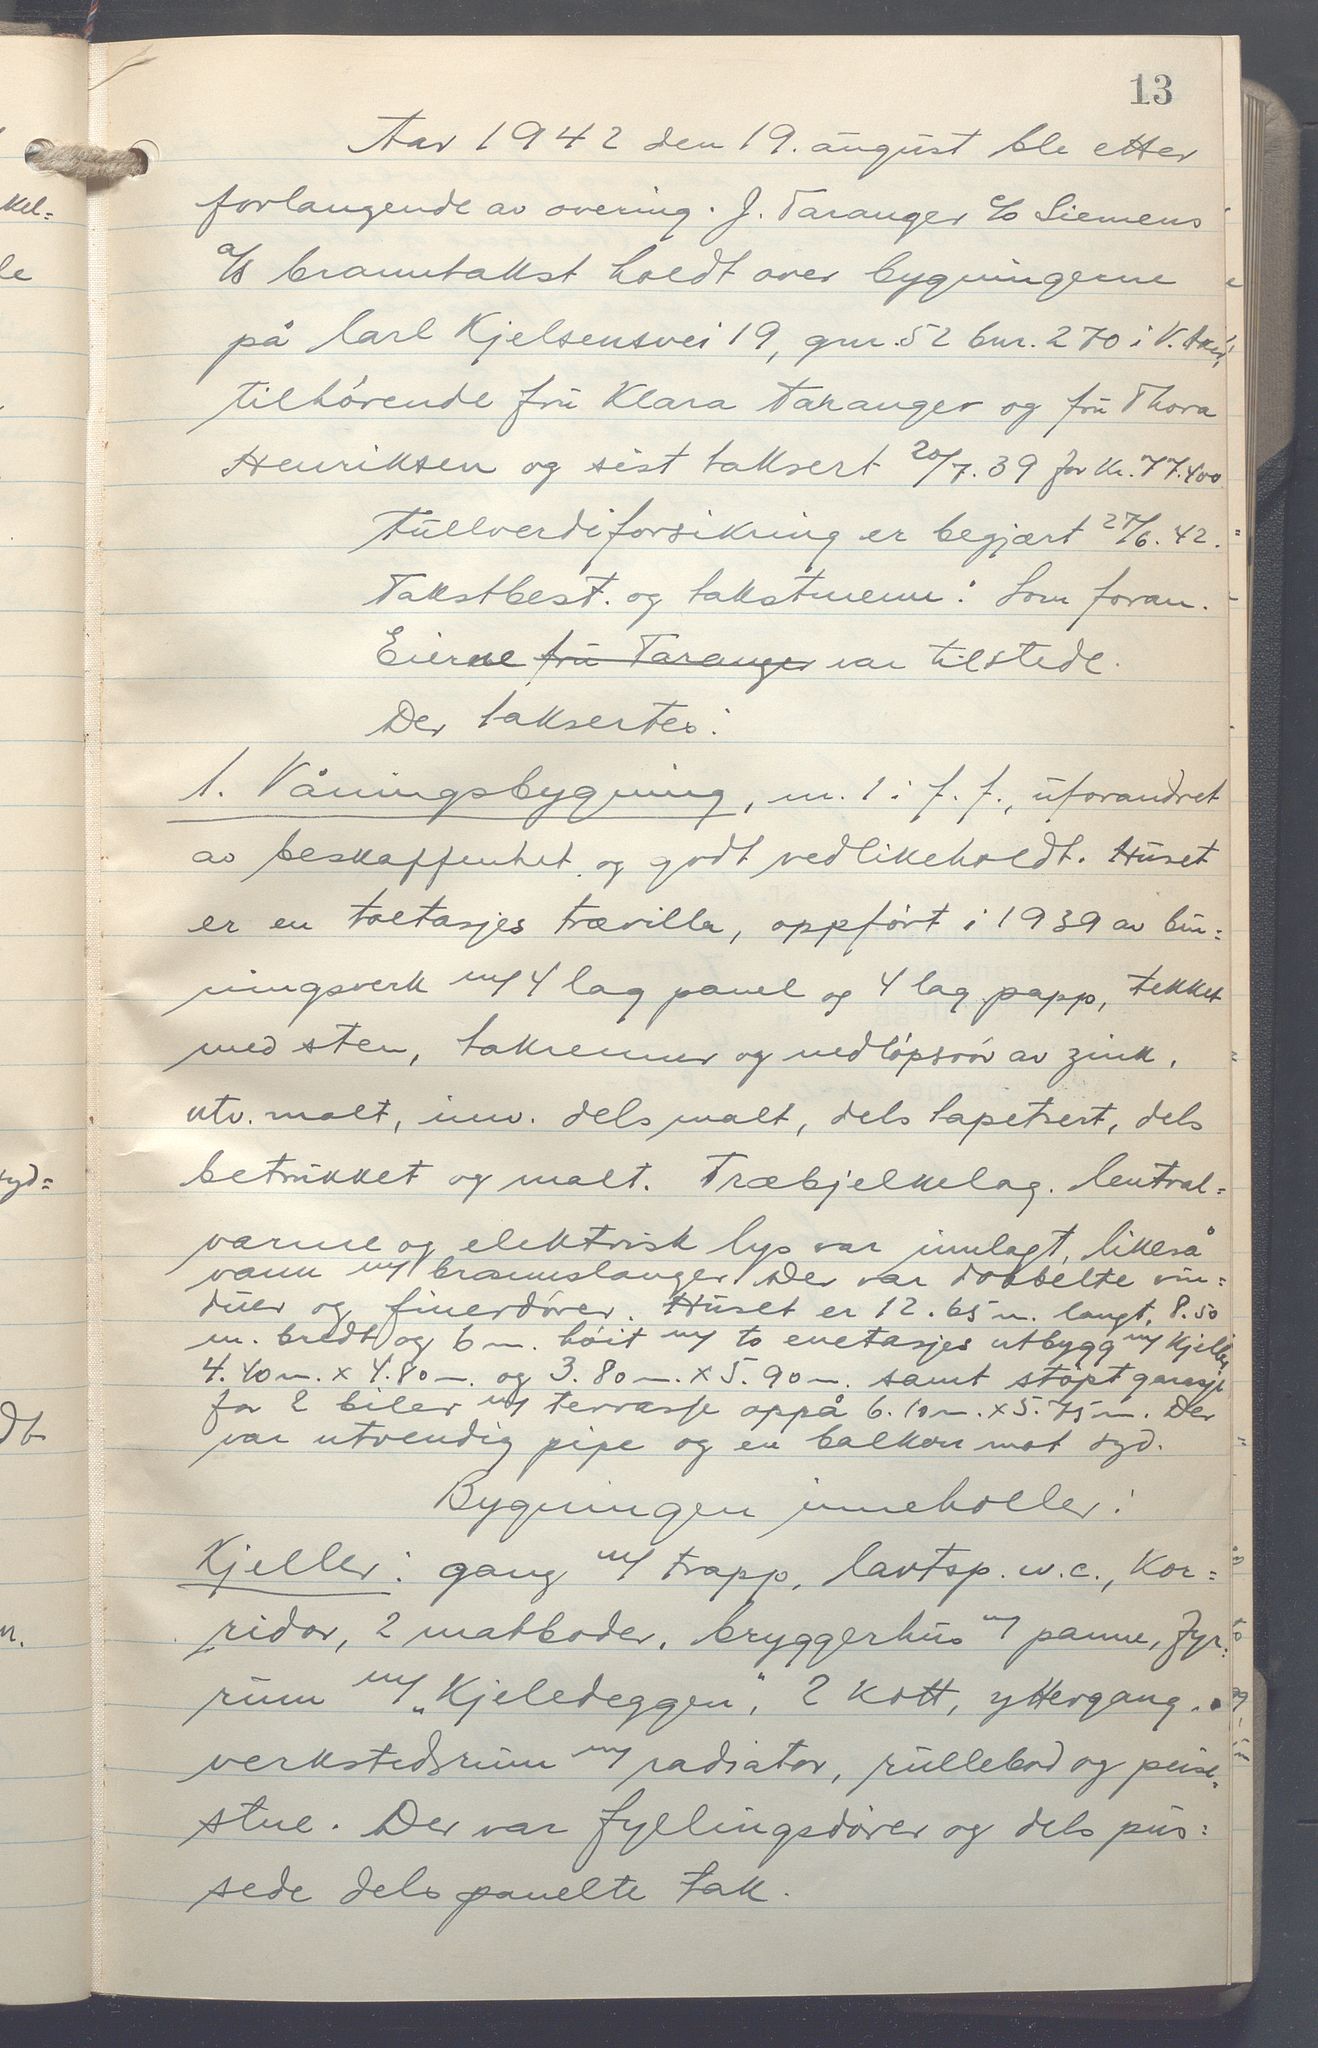 13
Aar 1942 den 19. august ble etter
forlangende av overing. J. Taranger c/o Siemens
a/s branntakst holdt over bygningerne
på Carl Kjelsensvei 19, gnr. 52 bnr. 270 i V. Aker,
tilhørende fru Klara Taranger og fru Thora
Henriksen og sist taksert 20/7.39 for kr. 77.400
Fullverdiforsikring er begjært 27/6.42.
Takstbest. og takstmenn: Som foran.
Eierne fru Taranger var tilstede.
Der taksertes:
1. Våningsbygning, m. 1 i f. f., uforandret
av beskaffenhet og godt vedlikeholdt. Huset
er en toetasjes trævilla, oppført i 1939 av bin=
ningsverk m/ 4 lag panel og 4 lag papp, tekket
med sten, takrenner og nedløpsrør av zink,
utv. malt, innv. dels malt, dels tapetsert, dels
betrukket og malt. Træbjelkelag. Central=
varme og elektrisk lys var innlagt, likeså
vann m/ brannslanger. Der var dobbelte vin=
duer og finerdører. Huset er 12.65 m. langt, 8.50
m. bredt og 6 m. høit m/ to enetasjes utbygg m/ kjeller
4.40 m. x 4.80 m. og 3.80 m. x 5.90 m. samt støpt garasje
for 2 biler m/ terrasse oppå 6.10 m. x 5.75 m. Der
var utvendig pipe og en balkon mot syd.
Bygningen inneholder:
Kjeller: gang m/ trapp, lavtsp. w.c., kor=
ridor, 2 matboder, bryggerhus m/ panne, fyr=
rum m/ „Kjeledeggen", 2 kott, yttergang,
verkstedsrum m/ radiator, rullebod og peise=
stue. Der var fyllingsdører og dels pus=
sede dels panelte tak.